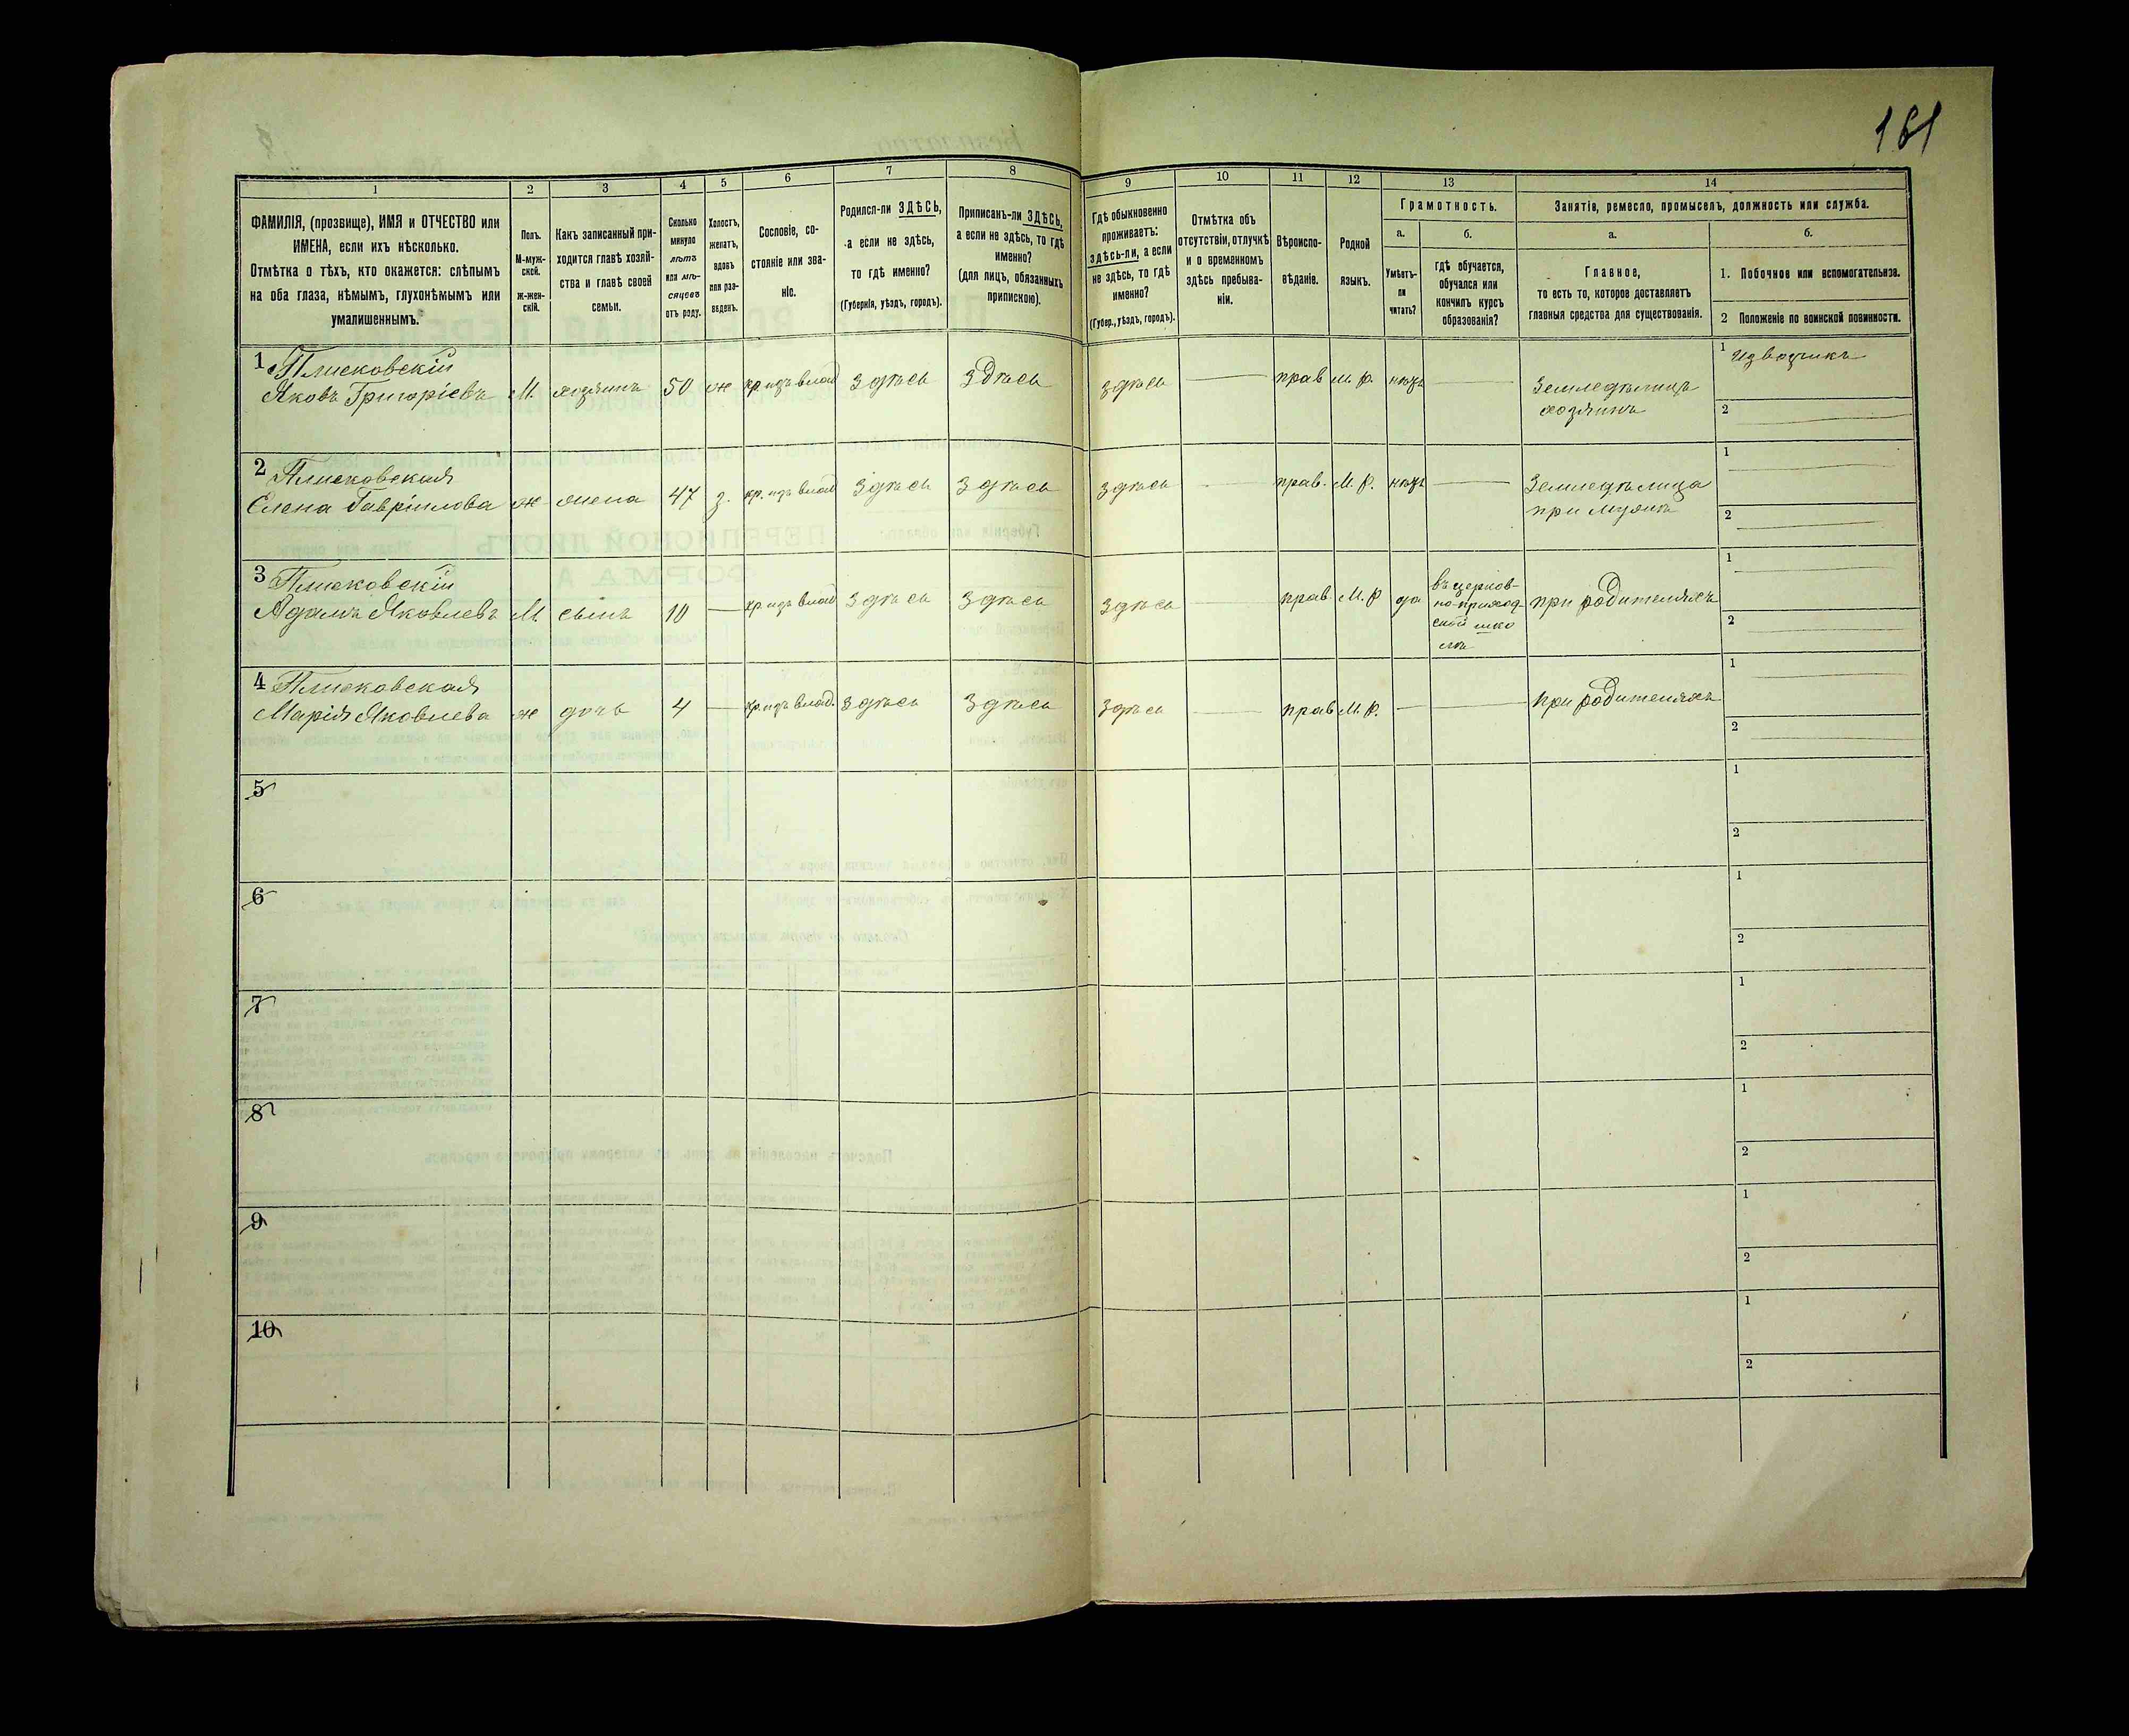 161
1
2
3
4
5
6
7
8
9
10
11
12
13
14
ФАМИЛІЯ, (прозвище), ИМЯ и ОТЧЕСТВО или
ИМЕНА, если ихъ нѣсколько.
Отмѣтка о тѣхъ, кто окажется: слѣпымъ
на оба глаза, нѣмымъ, глухонѣмымъ или
умалишеннымъ.
Полъ.
М-муж-
ской.
Ж-жен-
скій.
Какъ записанный при-
ходится главѣ хозяй-
ства и главѣ своей
семьи.
Сколько
минуло
лѣтъ
или мѣ-
сяцевъ
отъ роду.
Холостъ,
женатъ,
вдовъ
или раз-
веденъ.
Сословіе, со-
стояніе или зва-
ніе.
Родился-ли ЗДѢСЬ,
а если не здѣсь,
то гдѣ именно?
(Губернія, уѣздъ, городъ).
Приписанъ-ли ЗДѢСЬ,
а если не здѣсь, то гдѣ
именно?
(для лицъ, обязанныхъ
припискою).
Гдѣ обыкновенно
проживаетъ:
здѣсь-ли, а если
не здѣсь, то гдѣ
именно?
(Губер., уѣздъ, городъ).
Отмѣтка объ
отсутствіи, отлучкѣ
и о временномъ
здѣсь пребыва-
ніи.
Вѣроиспо-
вѣданіе.
Родной
языкъ.
Грамотность.
а.
Умѣетъ-
ли
читать?
б.
гдѣ обучается,
обучался или
кончилъ курсъ
образованія?
Занятіе, ремесло, промыселъ, должность или служба.
а.
Главное,
то есть то, которое доставляетъ
главныя средства для существованія.
б.
1. Побочное или вспомогательное.
2 Положеніе по воинской повинности.
1 Плисковскій
Яковъ Григоріевъ М. хозяинъ 50 ж кр. изъ влад здѣсь здѣсь здѣсь — прав М. р. нѣтъ — Земледѣлецъ
хозяинъ
1 извозчикъ
2
2 Плисковская
Елена Гавріилова ж жена 47 з. кр. изъ влад здѣсь здѣсь здѣсь — прав. М. р. нѣтъ — Земледѣлица
при мужѣ
1
2
3 Плисковскій
Адамъ Яковлевъ М. сынъ 10 — кр. изъ влад здѣсь здѣсь здѣсь — прав. М. р да въ церков-
но-приход-
ской шко
лѣ
при родителяхъ
1
2
4 Плисковская
Марія Яковлева ж дочь 4 — кр. изъ влад. здѣсь здѣсь здѣсь — прав М. р. — — при родителяхъ
1
2
5
1
2
6
1
2
7
1
2
8
1
2
9
1
2
10
1
2